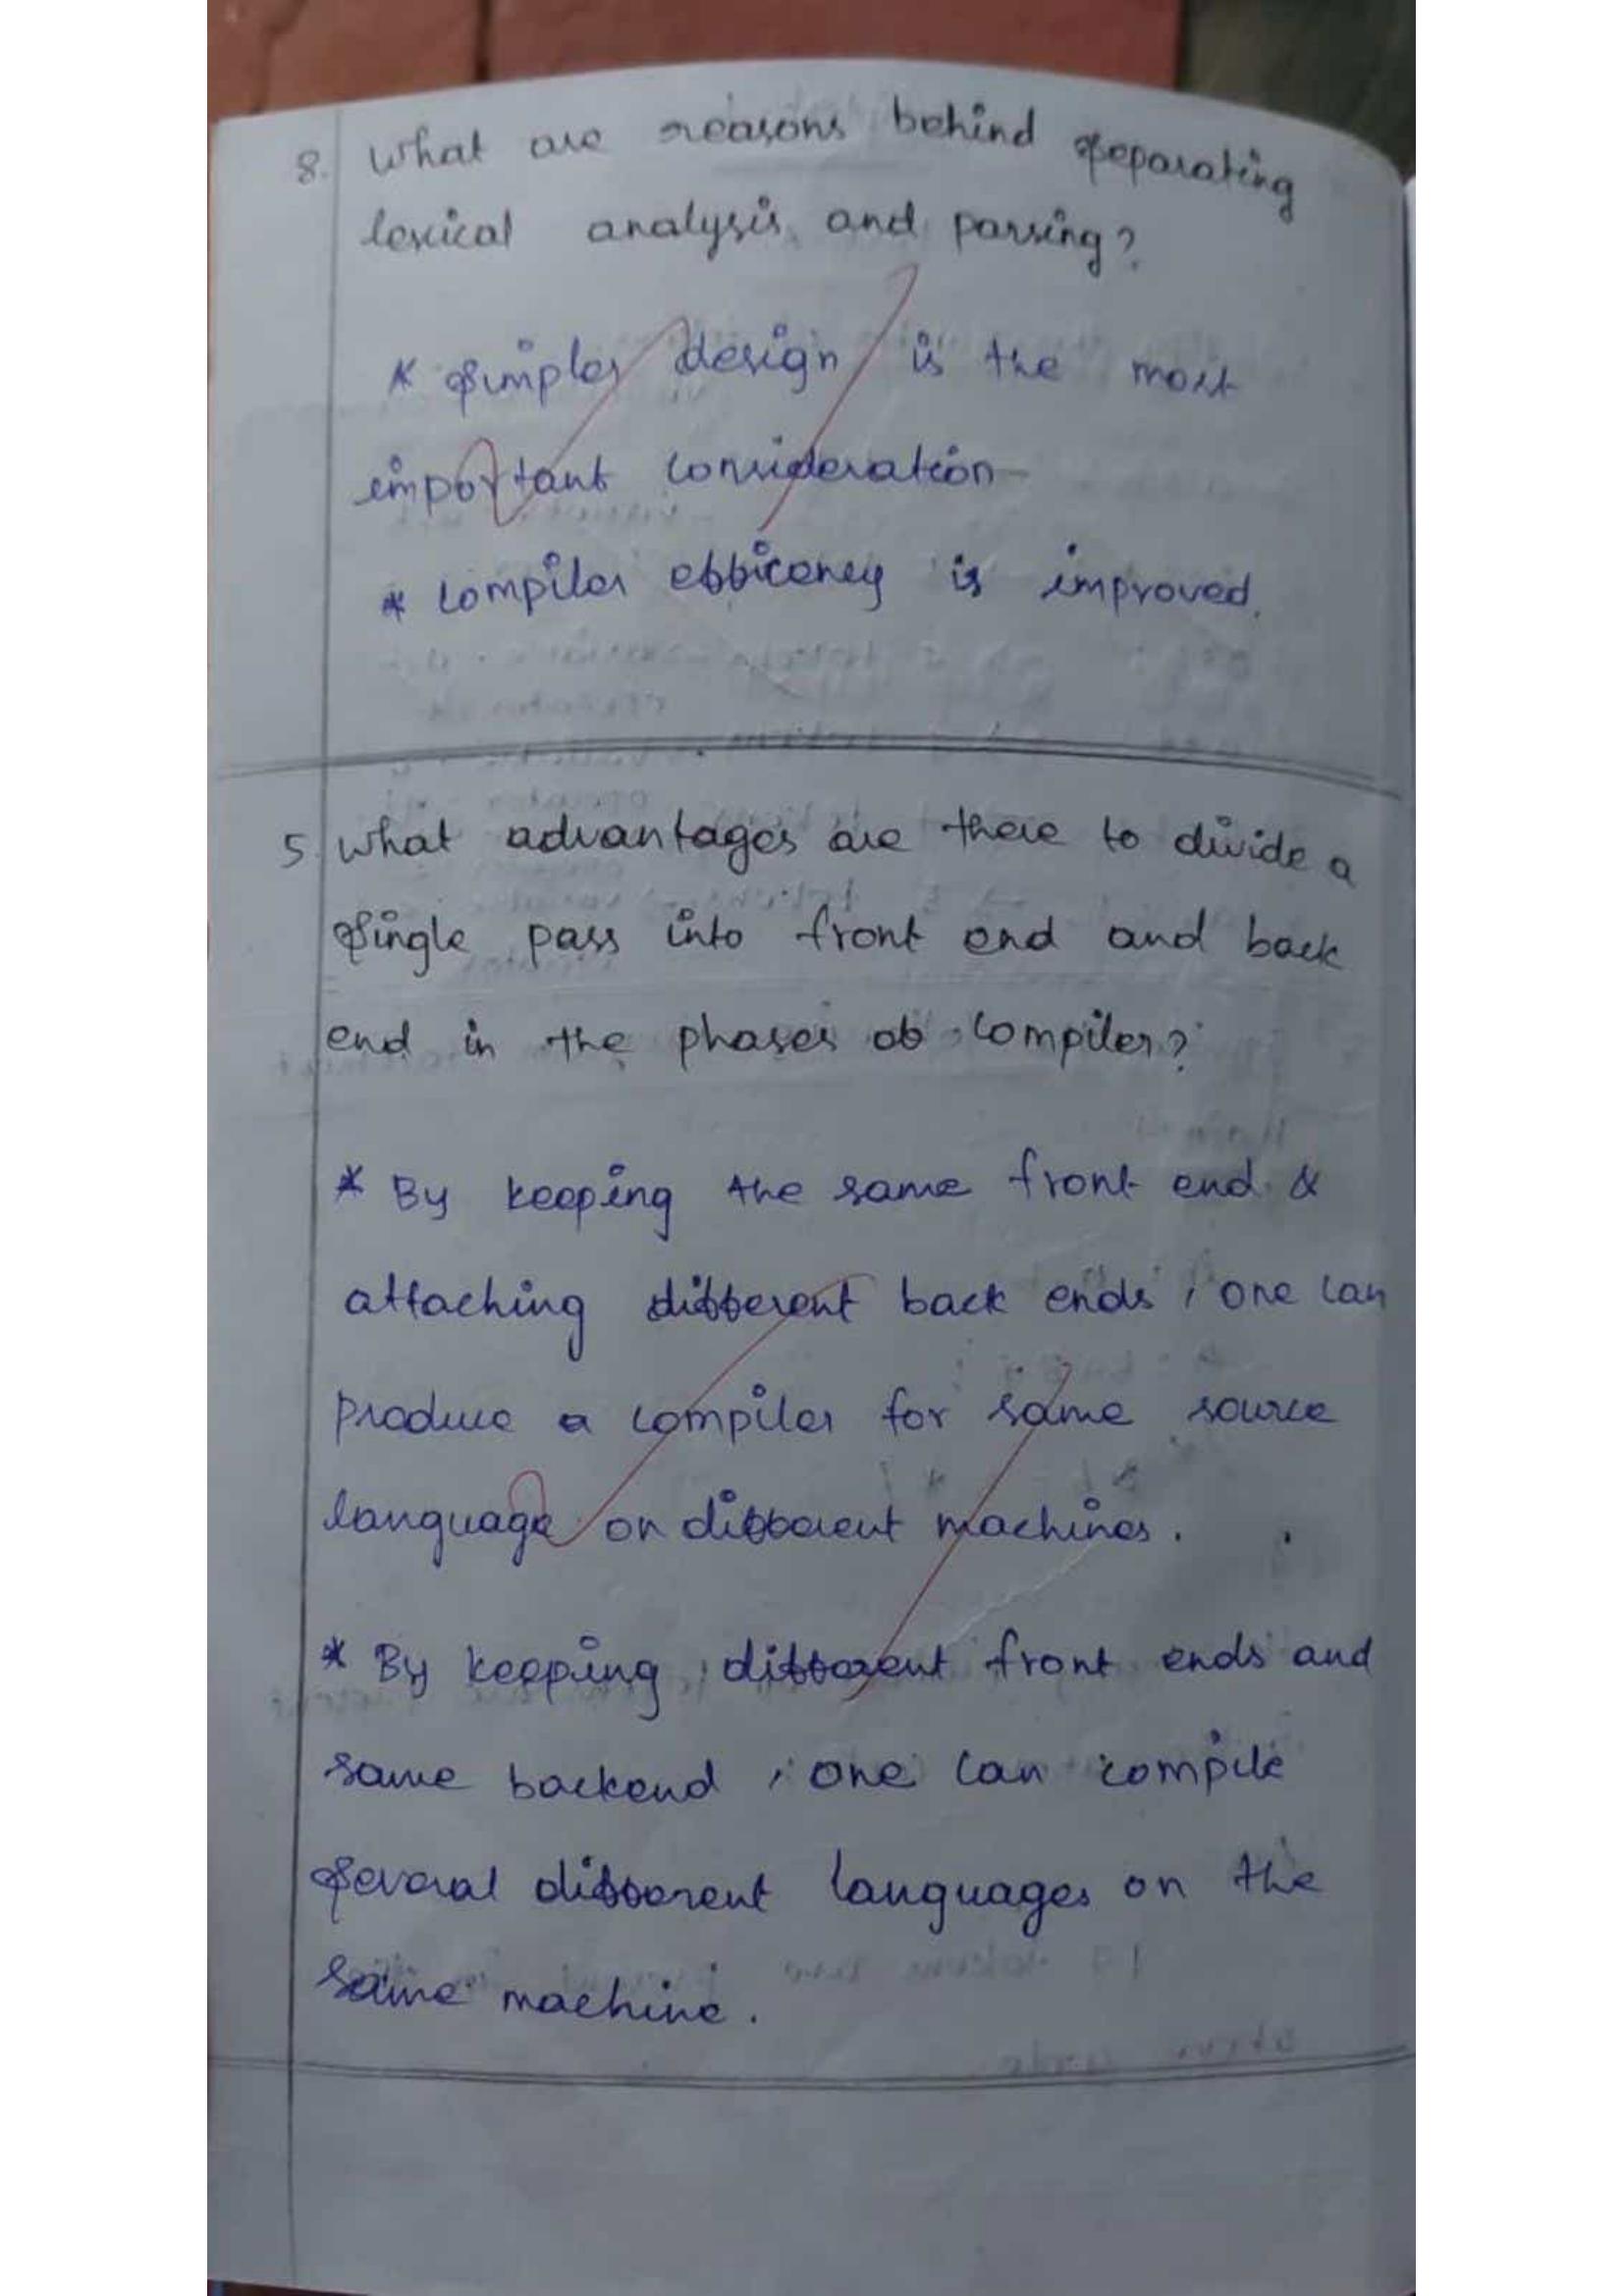 8. What are reasons behind separating
lexical analysis and parsing?
* Simpler design is the most
important consideration
* Compiler efficency is improved.
5. What advantages are there to divide a
single pass into front end and back
end in the phases of compiler?
* By keeping the same front end &
attaching different back ends, one can
produce a compiler for same source
language on different machines.
* By keeping different front ends and
same backend, one can compile
several different languages on the
same machine.